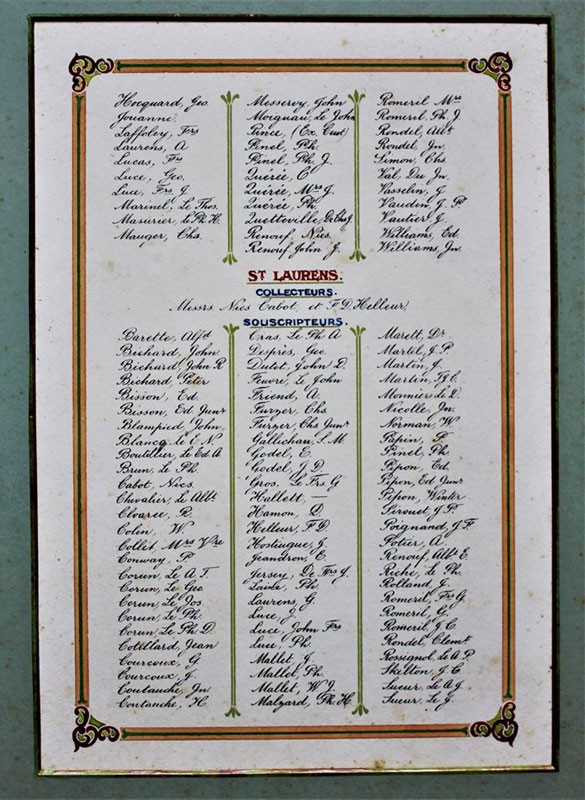 Hocquard, Geo.
Jouanne,
Laffoley, Frs
Laurens, A
Lucas, Frs
Luce, Geo.
Luce, Frs J
Marinel, Le Thos.
Masurier, Le Ph. H.
Mauger, Chs.
Messervy, John
Morquan, Le John
Pince, (Ex. Cent)
Pinel, Ph.
Pinel, Ph. J.
Quérée, C
Quérée, Mrs J.
Quérée, Ph.
Quetteville, De
Renouf, Nics.
Renouf John J.
Romeril Mrs
Romeril, Ph. J.
Rondel, Albt
Rondel, Jn.
Simon, Chs.
Val. Du Jn.
Vasselin, J
Vaudin, J. P.
Vautier J.
Williams, Ed.
Williams, Jn.
ST LAURENS.
COLLECTEURS.
Messrs Nics Cabot, et F. D. Helleur
SOUSCRIPTEURS.
Barette, Alfd
Bichard, John
Bichard, John R
Bichard, Peter
Bisson, Ed.
Bisson, Ed Junr
Blampied, John
Blancq, Le E. N.
Boutillier, Le Ed A
Brun, Le Ph.
Cabot, Nics.
Chevalier, Le Albt
Cloarec, R.
Colin, W
Collet, Mrs Vve
Conway, P.
Cornu, Le A. T.
Cornu, Le Geo.
Cornu, Le Jos
Cornu, Le Ph.
Cornu, Le Ph D.
Cotillard, Jean
Courcoux, G
Courcoux, J.
Coutanche, Jn
Coutanche, H.
Cras, Le Ph A
Després, Geo.
Dutot, John D.
Feuvre, Le John
Friend, A.
Furzer, Chs.
Furzer, Chs Junr
Gallichan, S. M
Godel, E.
Godel, J. D.
Gros, Le Frs G
Hallett, —
Hamon, D
Helleur, F. D.
Hostingue, J.
Jeandron, E.
Jersey, De Frs J.
Laisle, Ph.
Laurens, G.
Luce, J.
Luce, John Frs
Luce, Ph.
Mallet, J.
Mallet, Ph.
Mallet, W J.
Malzard, Ph. H.
Marett, Dr
Martel, J. P.
Martin, J.
Martin,
Monnier Le
Nicolle, Jn.
Norman, W
Papin, F.
Pinel, Ph.
Pipon, Ed.
Pipon, Ed Junr
Pipon, Winter
Pirouet J. P.
Poignand, J. F.
Potier, A.
Renouf, Albt E.
Riche, Le Ph.
Rolland, J.
Romeril, Frs G
Romeril, G.
Romeril, J. C.
Rondel, Clemt
Rossignol, Le A P.
Skelton, J. C.
Sueur, Le A J.
Sueur, Le J.